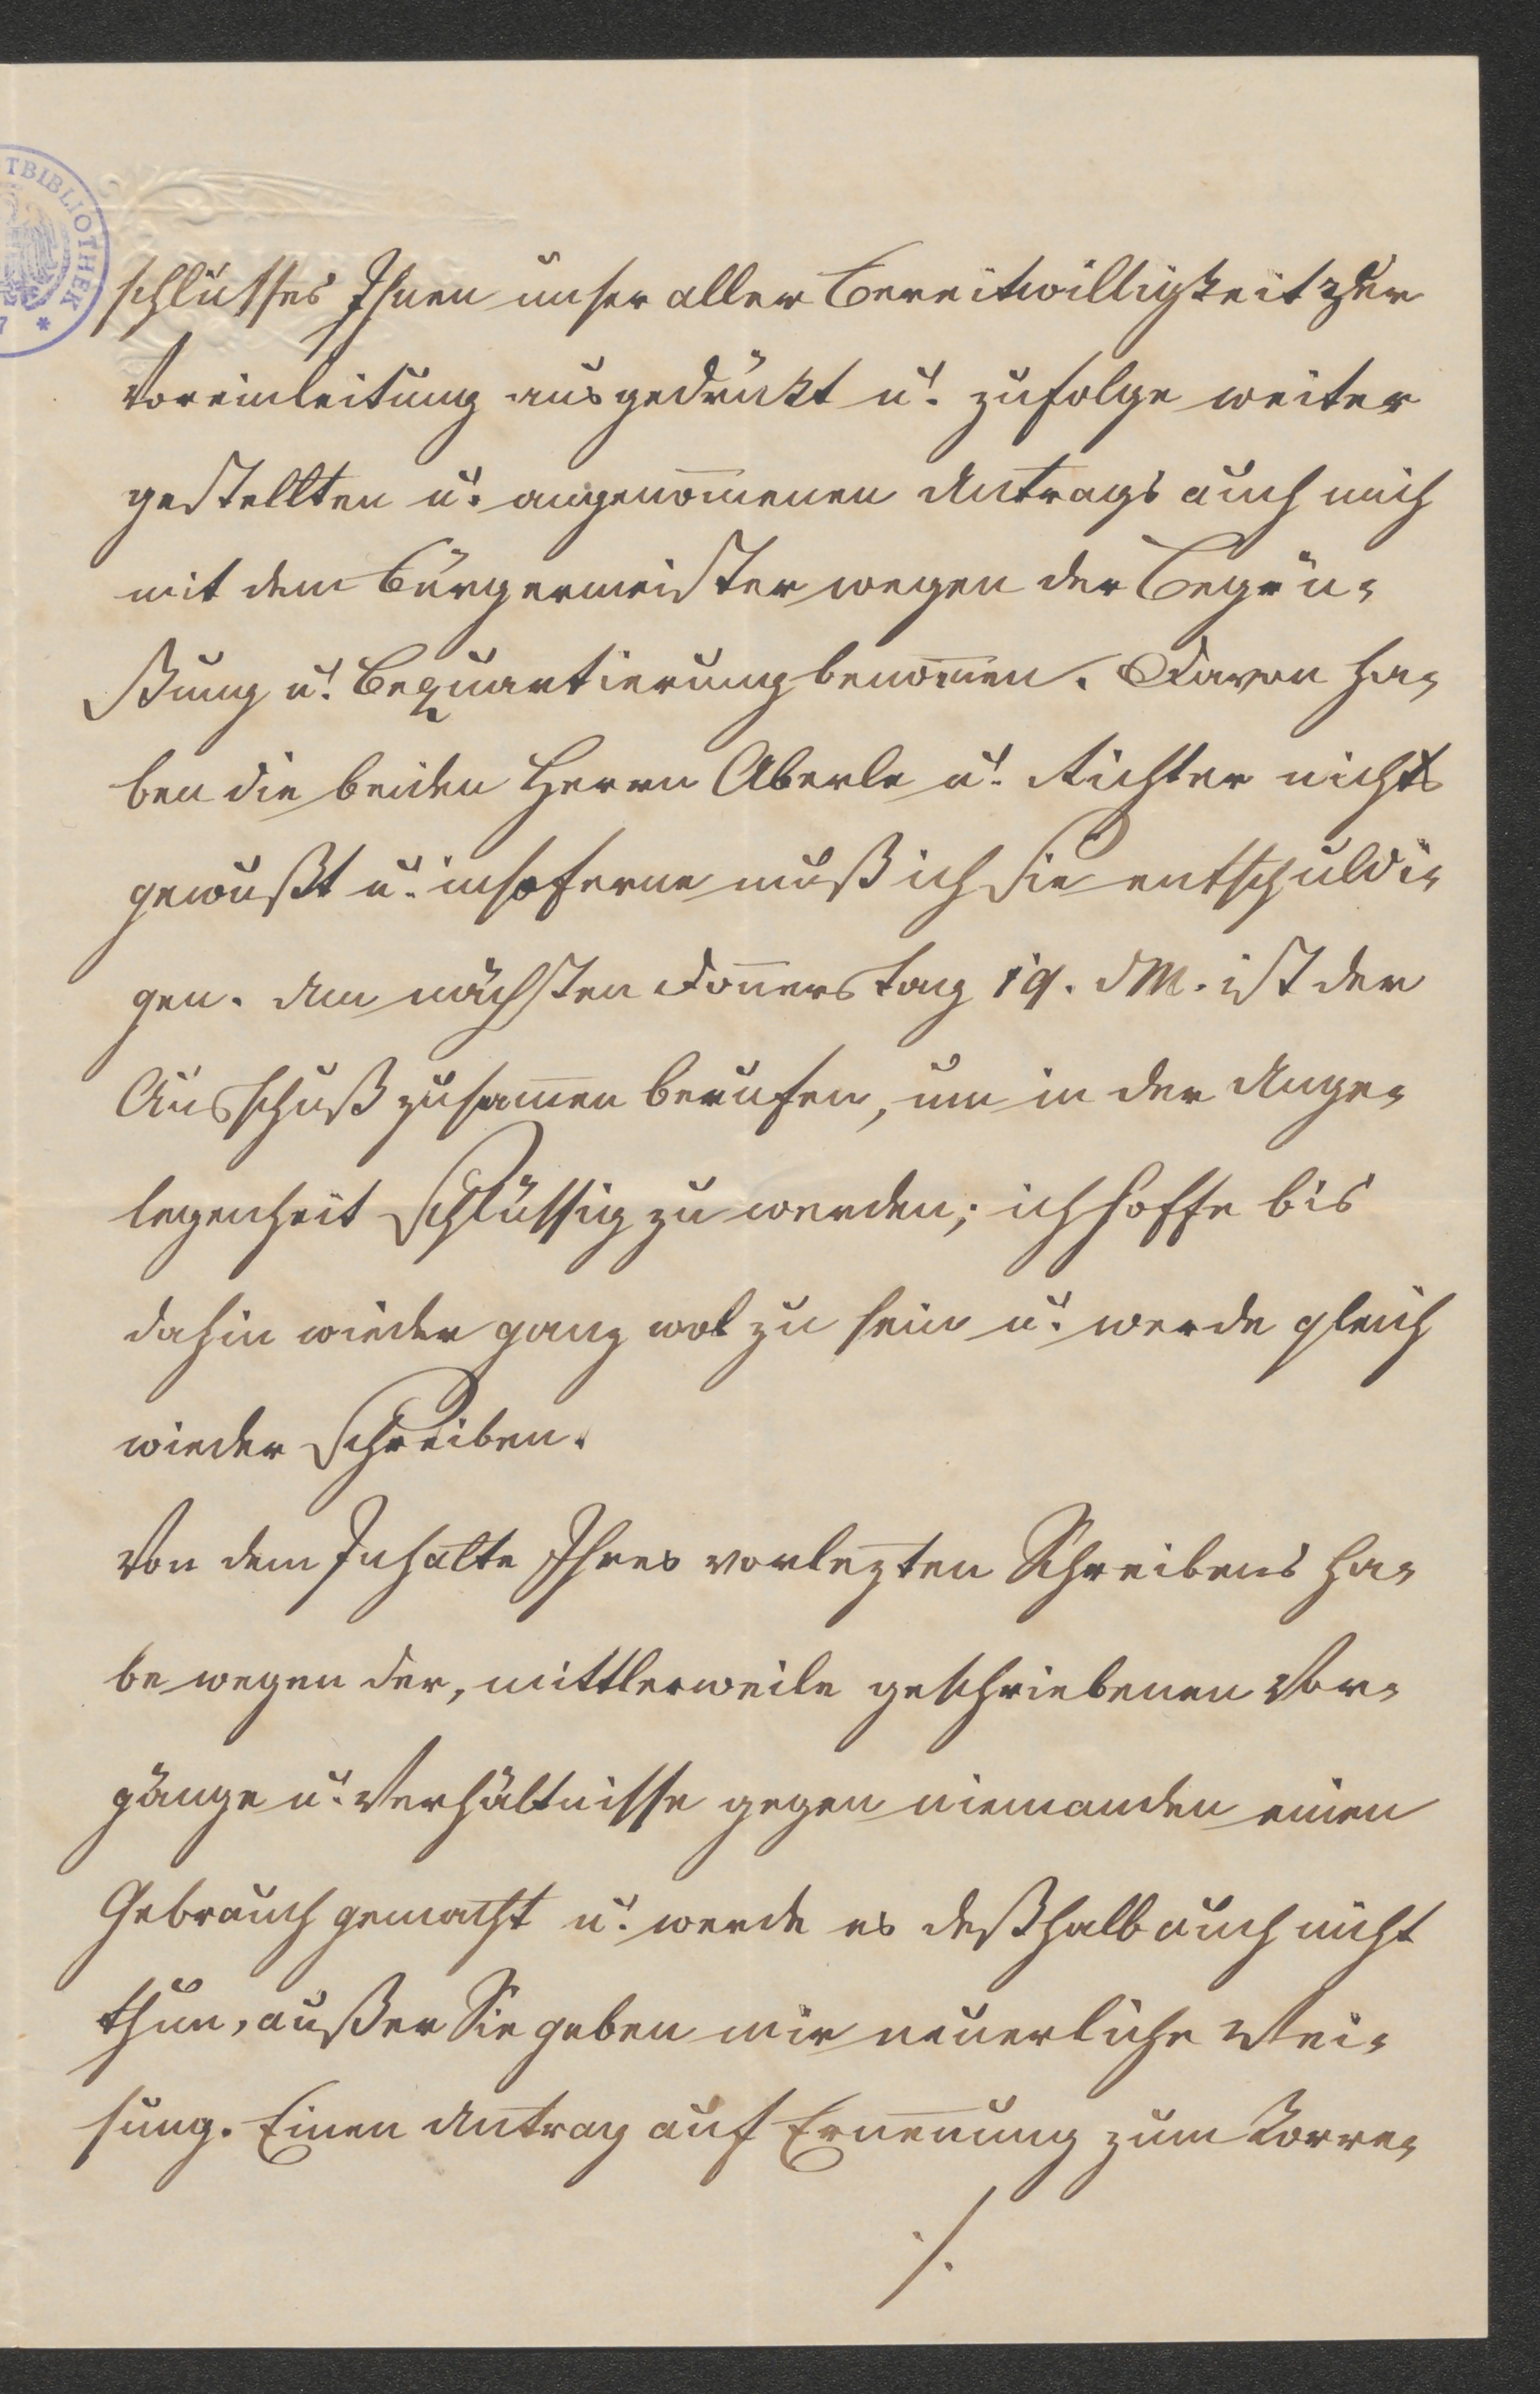 TBIBLIOTHEK
7 *
schlusses Ihnen unser aller Bereitwilligkeit zur
Voreinleitung ausgedrükt u. zufolge weiter
gestellten u. angenom̅enen Antrags auch mich
mit dem Bürgermeister wegen der Begrü-
ßung u. Bequartierung benom̅en. Davon ha-
ben die beiden Herrn Aberle u. Richter nichts
gewußt u. insoferne muß ich Sie entschuldi-
gen. Am nächsten Don̅erstag 19. d M. ist der
Ausschuß zusam̅en berufen, um in der Ange-
legenheit schlüssig zu werden; ich hoffe bis
dahin wieder ganz wol zu sein u. werde gleich
wieder schreiben.
Von dem Inhalte Ihres vorlezten Schreibens ha-
be wegen der, mittlerweile geschriebenen Vor-
gänge u. Verhältnisse gegen niemanden einen
Gebrauch gemacht u. werde es deßhalb auch nicht
thun, außer Sie geben mir neuerliche Wei-
sung. Einen Antrag auf Ernen̅ung zum Korre-
./.